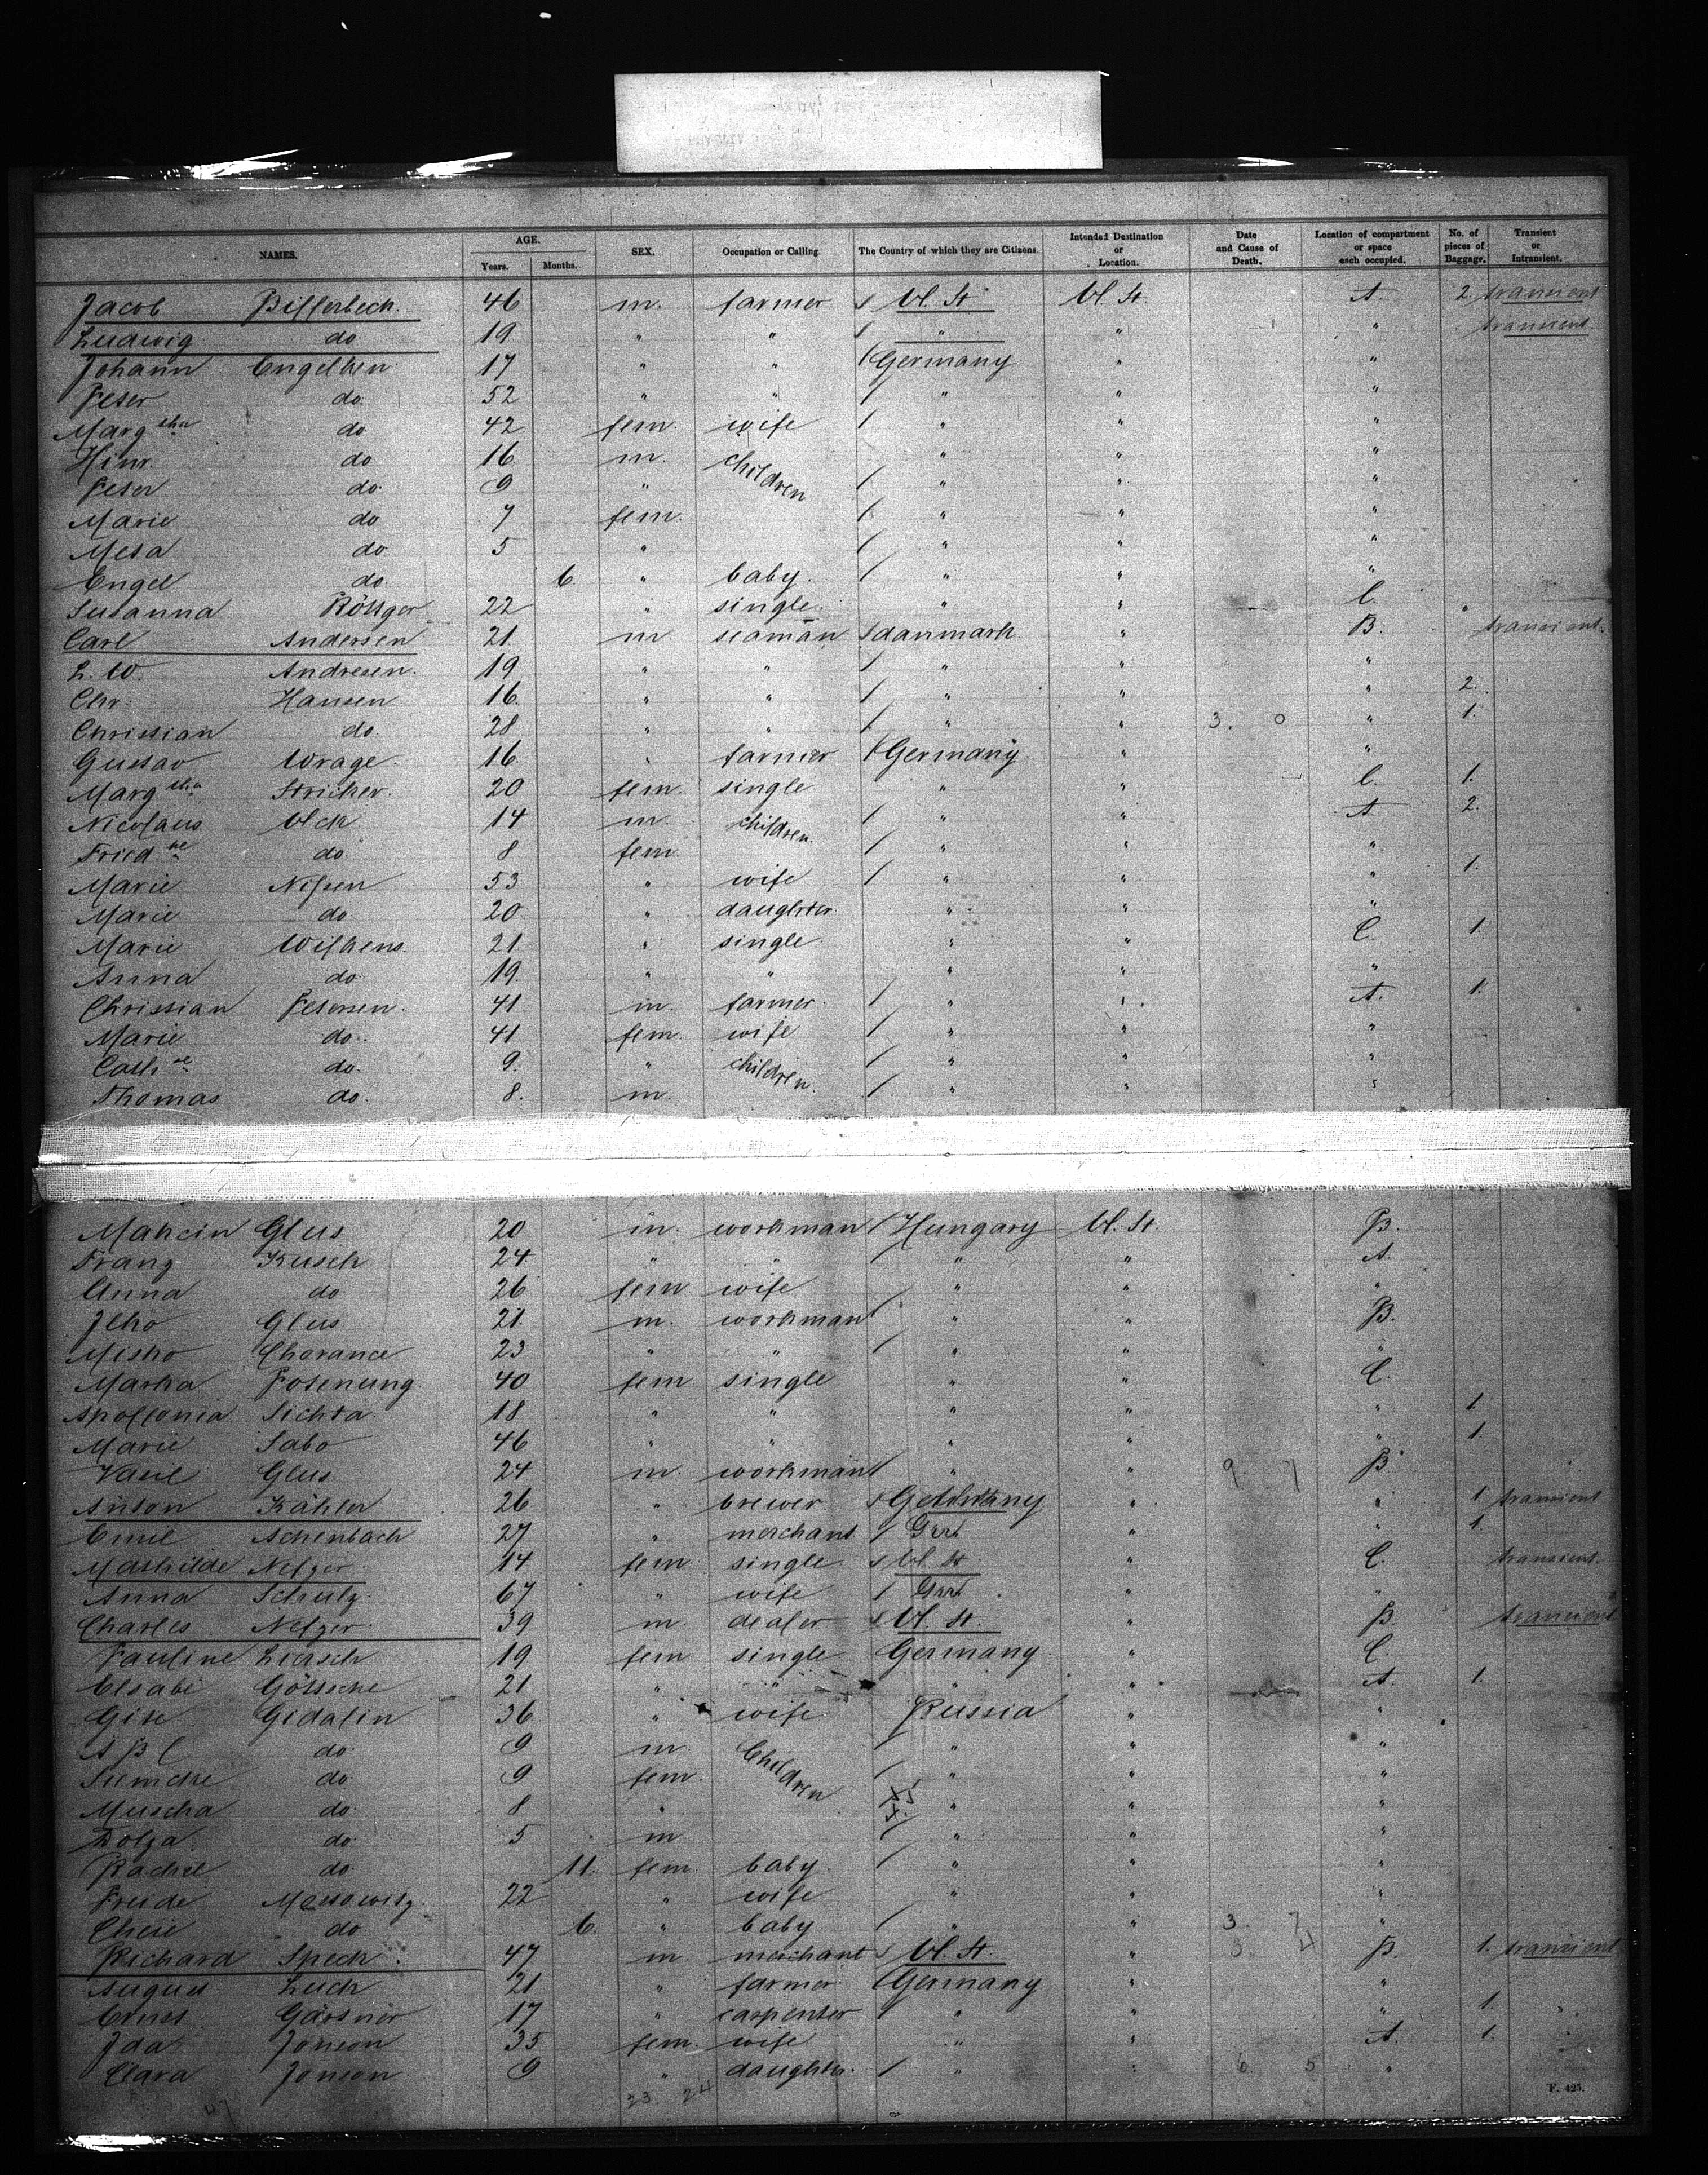 NAMES. AGE. Years. Months. SEX. Occupation or Calling. The Country of which they are Citizens. Intended Destination or Location. Date and Cause of Death. Location of compartment or space each occupied. No. of pieces of Baggage. Transient or Intransient.
Jacob Bifferbech. 46 m. farmer U. St. U. St. A. 2 transient
Ludwig do 19 " " " " " transient
Johann Engelken 17 " " Germany " "
Peter do. 52 " " " " "
Marg tha do 42 fem. wife " " "
Hinr. do 16 m. children " " "
Peter do. 9 " " " "
Marie do 7 fem. " " "
Meta do 5 " " " "
Engel do. 6 " baby. " " "
Susanna Röttger 22 " single " " C.
Carl Andersen 21 m seaman danmark " B. transient.
L. W. Andresen. 19 " " " " "
Chr. Hansen 16. " " " " " 2.
Christian do. 28 " " " " 3. 0 " 1.
Gustav Wrage. 16. " farmer Germany " "
Marg tha Stricker. 20 fem. single " " C. 1.
Nicolaus Uck 14 m. children " " A 2.
Fried ke do 8 fem " " "
Marie Nissen 53 " wife " " " 1.
Marie do 20. " daughter " " "
Marie Wilkens. 21. " single " " C. 1.
Anna do 19 " " " " "
Christian Petersen. 41 m. farmer. " " A. 1.
Marie do. 41 fem. wife " " "
Cath ne do. 9. " children. " " "
Thomas do. 8. m. " " "
Mahcin Glus 20 m. workman Hungary U. St. B.
Franz Kusch 24. " " " " A.
Anna do 26 fem wife " " "
Jlko Glus 21. m. workman " " B.
Misko Chorance 23 " " " " "
Marka Potenung 40 fem single " " C.
Apollonia Sichta 18 " " " " " 1.
Marie Sabo 46 " " " " " 1.
Vasil Glus 24 m. workman " " 9. 7 B.
Anton Kähler 26 " brewer " " 1 transient
Emil Achenbach 27 " merchant Ger. " " 1.
Mathilde Netzer 14 fem single U. St " C. transient.
Anna Schulz 67 " wife Ger. " "
Charles Netzer 39 m. dealer U. St. " B. transient
Pauline Liersch 19 fem single Germany " C.
Elsabe Göttsche 21 " " " " A. 1.
Gise Gidalin 36 " wife Russia " "
do. 9 m. Children " " "
Siemche do 9 fem. " " "
Muscha do. 8 " " " "
do. 5 m " " "
Rachel do 11. fem baby. " " "
Freide 22 " wife " " "
Cheie do 6. " baby " " 3. 7 "
Richard Spech. 47 m. merchant U. St. " 3 4 B. 1. transient
August Luch 21 " farmer Germany " "
Ernst Gärtner 17 " carpenter " " " 1.
Ida Jonson 35 fem. wife " " A. 1.
Clara Jonson 9 " daughter. " " 6. 5 "
23. 24
47
F. 425.